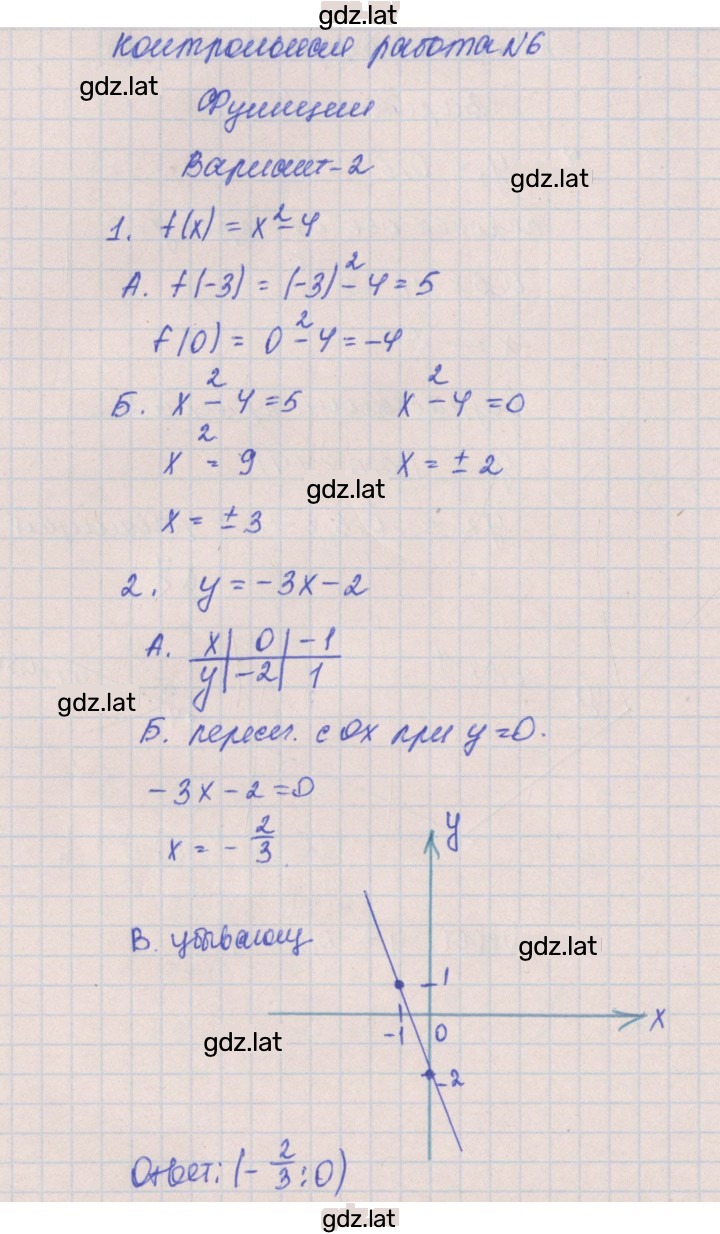 gdz.lat
контрольная работа №6
gdz.lat
Функции
Вариант-2
gdz.lat
1. f(x) = x² - 4
А. f(-3) = (-3)² - 4 = 5
f(0) = 0² - 4 = -4
Б. x² - 4 = 5 x² - 4 = 0
x² = 9 x = ± 2
gdz.lat
x = ± 3
2. y = -3x - 2
А. x | 0 | -1
y | -2 | 1
gdz.lat
Б. пересеч. с ox при y = 0.
-3x - 2 = 0
x = - 2/3
y
В. убывающ
gdz.lat
1
x
-1 0
gdz.lat
-2
Ответ: (- 2/3 ; 0)
gdz.lat